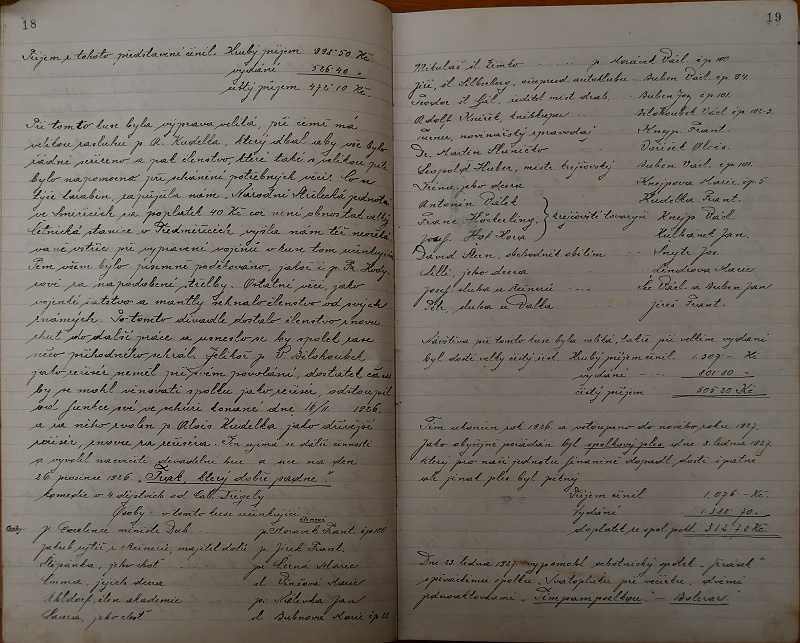 18
Příjem z tohoto představení činil. Hrubý příjem 995·50 Kč
vydání 526·40 "
čistý příjem 472·10 Kč.
Při tomto kuse byla výprava veliká, při čemž má
velikou zásluhu p. A. Kudella, který dbal aby vše bylo
řádně seřízeno a pak členstvo, které také s velikou pílí
bylo nápomocno při shánění potřebných věcí. Co se
týče karabin, zapůjčila nám Národní Střelecká jednota
ve Smiřicích za poplatek 40 Kč což není obnos tak velký
četnická stanice v vyšla nám též
vstříc při vypravení vojínů v kuse tom
Těm všem bylo písemně poděkováno, jakož i p. Fr.
za napodobení střelby. Ostatní věci, jako
vojenské a mantly sehnalo členstvo od svých
známých. Po tomto divadle dostalo členstvo znovu
chuť do další práce a usneslo se by spolek zase
něco příhodného sehrál. Jelikož p. V. Bělohoubek
jako režisér neměl při svém povolání, dostatek času
by se mohl věnovati spolku jako režisér, odstoupil
od funkce své ve schůzi konané dne 18/11 1926.
a za něho zvolen p. Alois Kudelka jako dřívější
režisér, znovu za režiséra. Ten ujímá se další činnosti
a vyvolil nacvičiti divadelní hru a to na den
26. prosince 1926 "Frak, který dobře padne"
komedie o 4 dějstvích od Gab. Drégely
Osoby: v tomto kuse účinkující
členové
Osoby: p. Excelence ministr Dub p. Morávek Frant. čp 100
Jakub rytíř z Reinerů, majitel dolů p. Jirek Frant.
Štěpánka, jeho choť pí Černá Marie
Emma, jejich dcera sl. Pinzová Marie
Uhldorf, člen akademie p. Neklevka Jan
Laura, jeho choť sl. Bubnová Marie čp.
19
Mikuláš sl. p. Morávek Václ. čp 100
Jiří, sl. Silberberg, vicepresid. autoklubu Buben Václ. čp. 84.
Teodor sl. Gál, ředitel Buben Jos. čp. 101.
Adolf knihkupec Bělohoubek Václ. čp 102-3.
Turner, novinářský zpravodaj Knejp. Frant.
Dr. Martin Sluničko Voříšek Alois.
Leopold Huber, mistr krejčovský Buben Václ. čp 101.
Irena, jeho dcera Knejpova Marie čp. 5
Antonín Válek Kudelka Frant.
Franc. Höckerling krejčovští tovaryši Knejp Václ.
Josef Hora Kulhánek Jan.
David Stern, obchodník obilím Šnejtr Jos.
Lilli, jeho dcera Lindrova Marie
Josef sluha u Reinerů Šec Václ. a Buben Jan
Petr, sluha u Válka Jireš Frant.
Návštěva při tomto kuse byla veliká, takže při velkém vydání
byl dosti velký čistý zisk. Hrubý příjem činil 1.307 - Kč
vydání 801·80 "
čistý příjem 505·20 Kč
Tím ukončen rok 1926. a vstoupeno do nového roku 1927.
Jako obyčejně pořádán byl spolkový ples dne 8. ledna 1927.
který pro naši jednotu finančně dopadl dosti špatně
ale jinak ples byl pěkný
Příjem činil 1.076 - Kč.
Vydání 1.388·70.
doplatek ze spol. pokl. 312·70 Kč.
Dne 23. ledna 1927. vypomohl ochotnický spolek "Jirásek"
spěváckému spolku "Svatopluk" při večírku, dvěmi
jednoaktovkami "Pimpampoelkou" - "Bolerax"